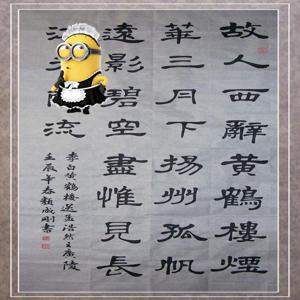 故人西辭黄鶴樓煙
華三月下揚州孤帆
遠影碧空盡惟見長
流
李白黄鶴樓送孟浩然之廣陵
壬辰年春成剛書